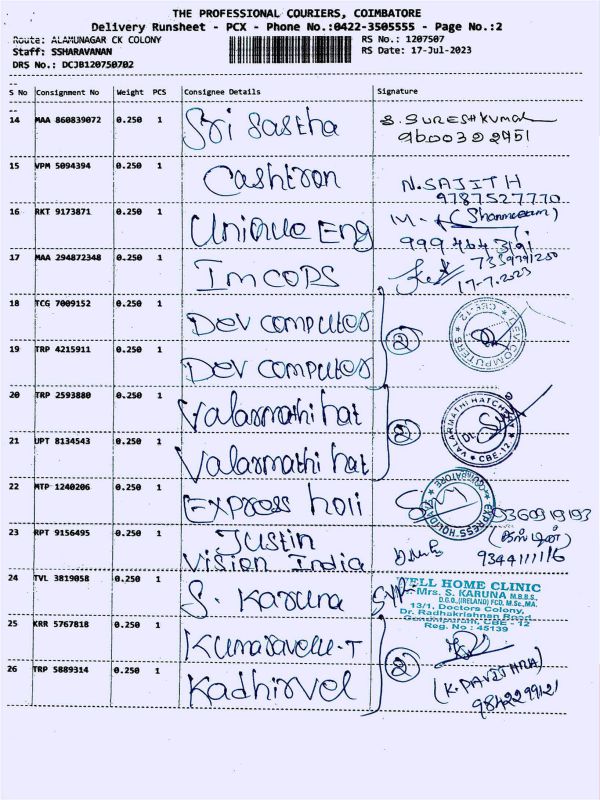 THE PROFESSIONAL COURIERS, COIMBATORE
Delivery Runsheet - PCX - Phone No.:0422-3505555 - Page No.:2
Route: ALAMUNAGAR CK COLONY
Staff: SSHARAVANAN
DRS No.: DCJB120750702
RS No.: 1207507
RS Date: 17-Jul-2023
S No Consignment No Weight PCS Consignee Details Signature
14 MAA 860839072 0.250 1 Sri Sastha S. SURESHKUMAR
9600322451
15 VPM 5094394 0.250 1 Cashtron N. SAJITH
9787527770
16 RKT 9173871 0.250 1 Unique Eng M. (Shanmugam)
17 MAA 294872348 0.250 1 Imcops 7339791200
17-7-2023
18 TCG 7009152 0.250 1 Dev computer
19 TRP 4215911 0.250 1 Dev computer
2
DEV COMPUTERS
CBE-12
20 TRP 2593880 0.250 1 Valarmathi hat
21 UPT 8134543 0.250 1 Valarmathi hat
2
VALARMATHI HATCHERY
CBE-12
22 MTP 1240206 0.250 1 Express holi
EXPRESS HOLIDAYS
COIMBATORE
9360919193
23 RPT 9156495 0.250 1 Justin
Vision India
9344111116
24 TVL 3819058 0.250 1 S. Karuna
WELL HOME CLINIC
Mrs. S. KARUNA M.B.B.S.,
D.G.O.,(IRELAND) FCD, M.Sc.,MA.
13/1, Doctors Colony,
Dr. Radhakrishnan Road
Gandhipuram, CBE - 12
Reg. No : 45139
25 KRR 5767818 0.250 1 Kumaravelu.T
26 TRP 5889314 0.250 1 Kadhirvel
2
(K. PAVITHRA)
9842299121